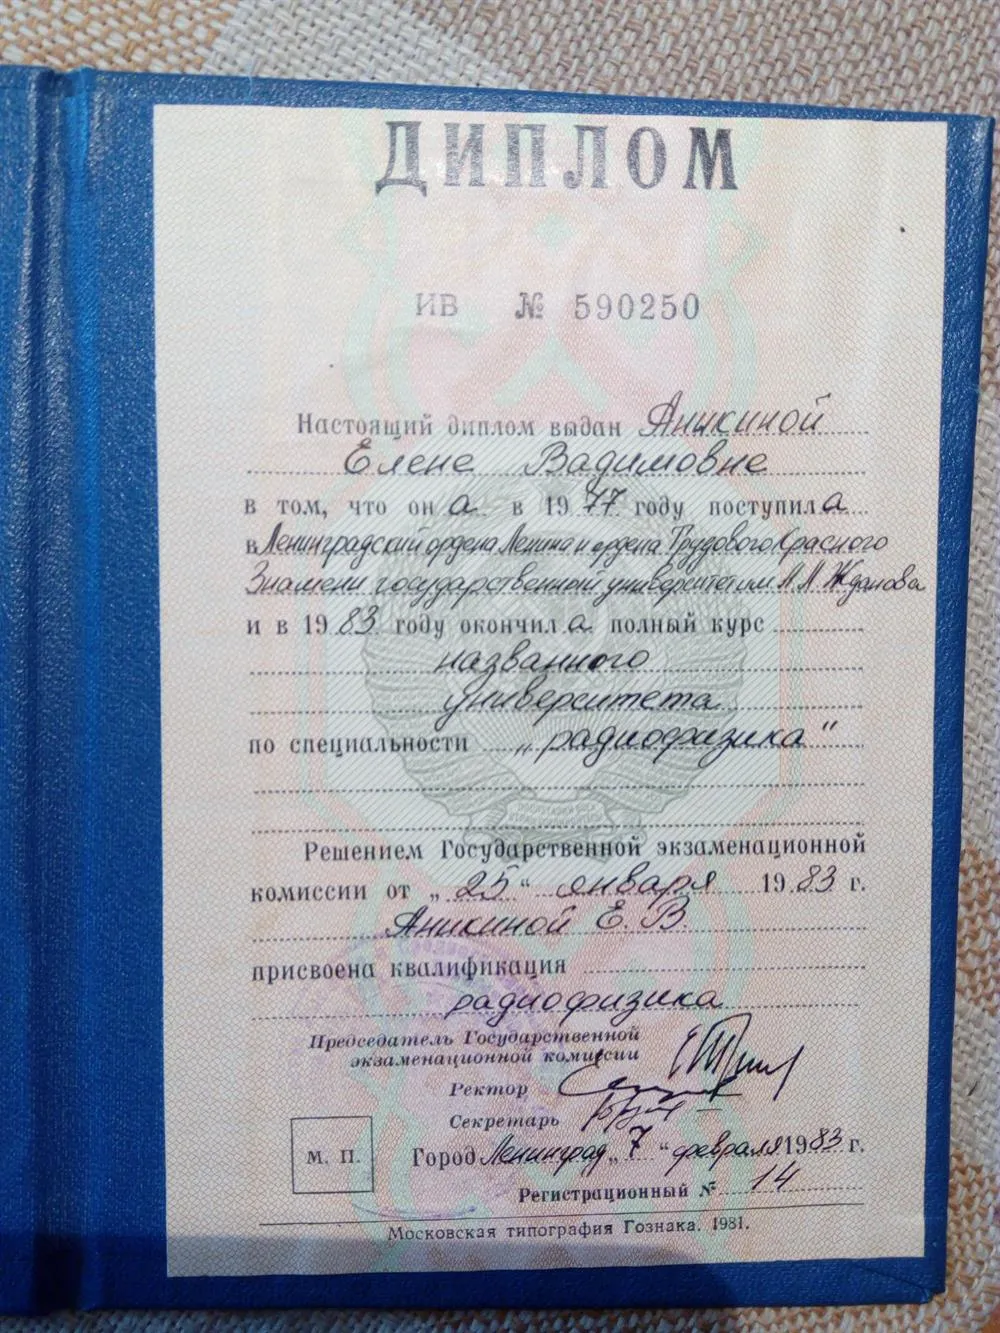 ДИПЛОМ
ИВ № 590250
Настоящий диплом выдан Аникиной
Елене Вадимовне
в том, что она в 1977 году поступила
в Ленинградский ордена Ленина и ордена Трудового Красного
Знамени государственный университет им. А. А. Жданова
и в 1983 году окончила полный курс
названного
университета
по специальности „радиофизика"
Решением Государственной экзаменационной
комиссии от „25" января 1983 г.
Аникиной Е. В.
присвоена квалификация
радиофизика
Председатель Государственной
экзаменационной комиссии
Ректор
Секретарь
М. П.
Город Ленинград „7" февраля 1983 г.
Регистрационный № 14
Московская типография Гознака. 1981.